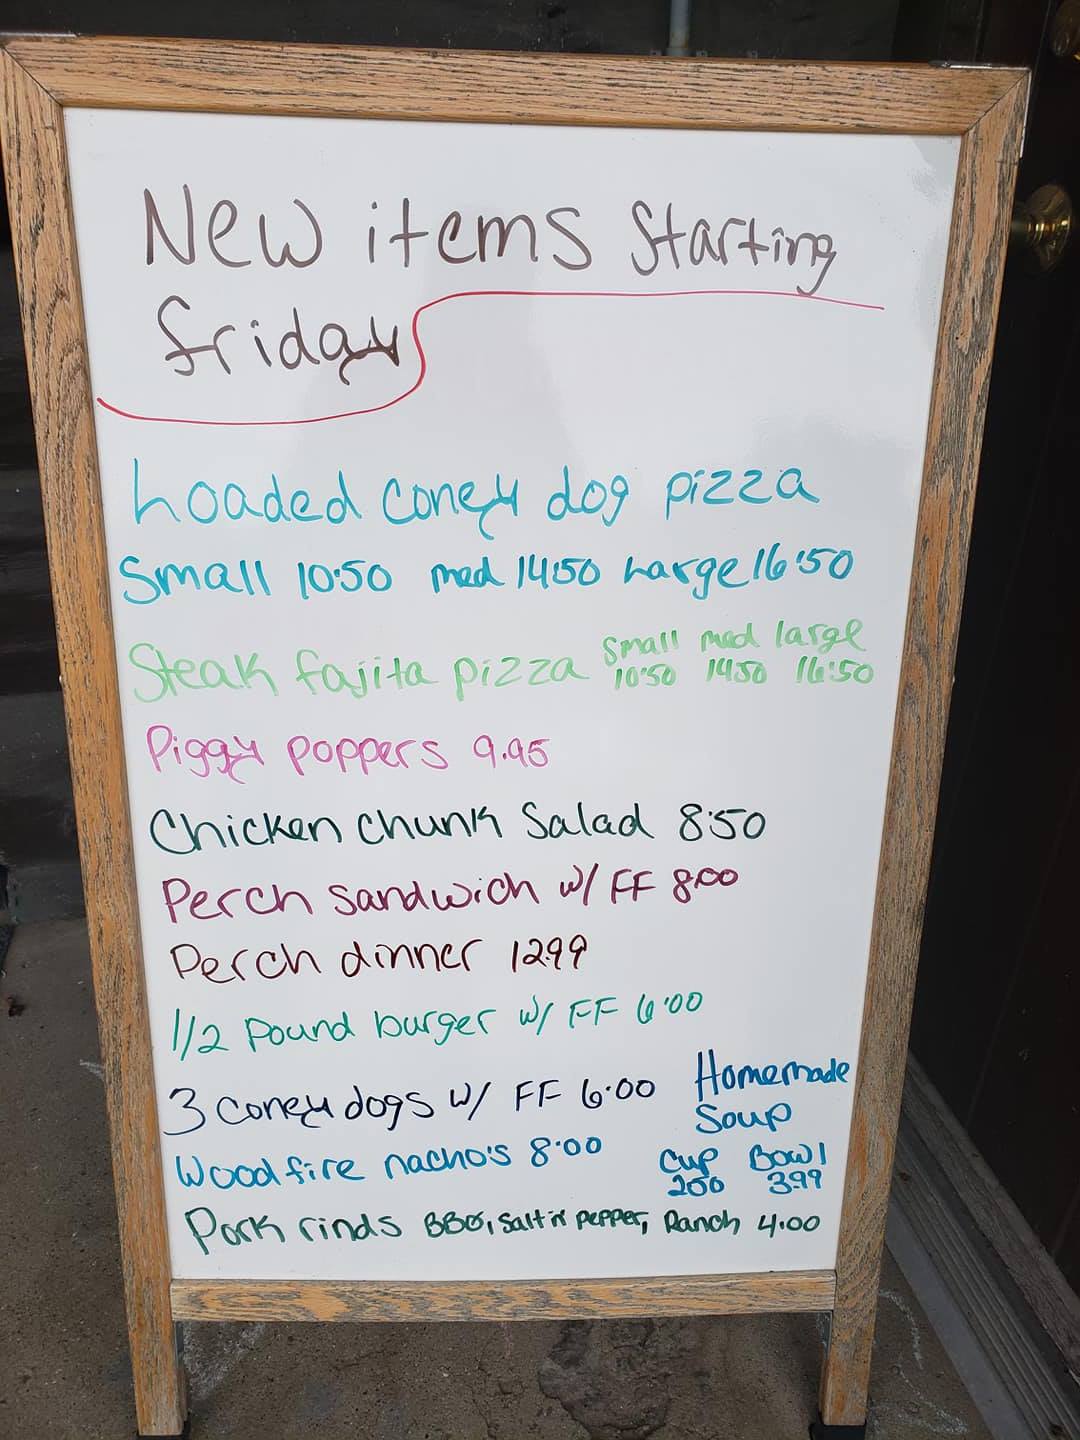 New items Starting
friday
Loaded coney dog pizza
Small 10:50 med 14:50 Large 16:50
Steak fajita pizza small med large
10:50 14:50 16:50
Piggy poppers 9.95
Chicken chunk Salad 8:50
Perch sandwich w/ FF 8:00
Perch dinner 12.99
1/2 pound burger w/ FF 6:00
3 coney dogs w/ FF 6:00
Woodfire nacho's 8:00
Homemade
Soup
Cup Bowl
2.00 3.99
Pork rinds BBQ, Salt n' pepper, Ranch 4.00